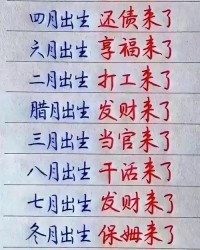 四月出生 还债来了
六月出生 享福来了
二月出生 打工来了
腊月出生 发财来了
三月出生 当官来了
八月出生 干活来了
七月出生 发财来了
冬月出生 保姆来了